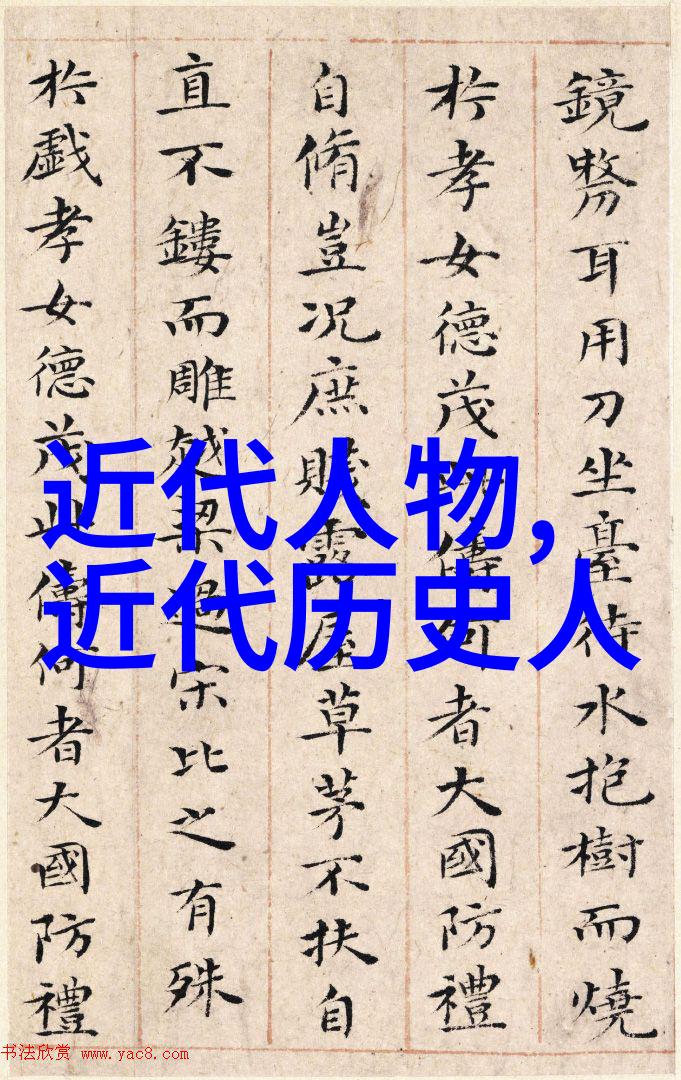 近代人物,
近代历史人
鏡剺耳用刀坐臺待水抱樹而燒
扵孝女德茂此儔何者大國防禮
自脩豈况庶賤露屋草茅不扶自
直不鏤而雕越梁過宋比之有殊
扵戲孝女德茂此儔何者大國防禮
书法欣赏 www.yac8.com